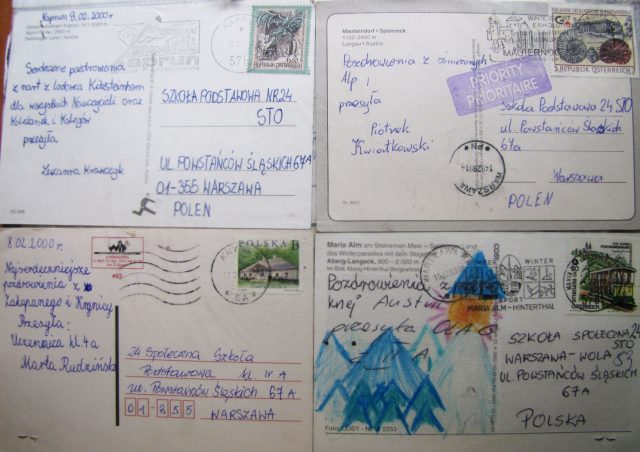 Kaprun 8.02.2000r.
Serdeczne pozdrowienia
z nart z lodowca Kitzsteinhorn
dla wszystkich Nauczycieli oraz
Koleżanek i Kolegów
przesyła
Zuzanna Krawczyk
SZKOŁA PODSTAWOWA NR 24
STO
UL. POWSTAŃCÓW ŚLĄSKICH 67A
01-355 WARSZAWA
POLEN
Mauterndorf • Speiereck
1122-2400 m
Lungau • Austria
Pozdrowienia z ośnieżonych
Alp!
przesyła
Piotrek
Kwiatkowski
PRIORITY
PRIORITAIRE
WARSZAWA
REPUBLIK ÖSTERREICH
Szkoła Podstawowa 24 STO
ul. Powstańców Śląskich
67a
Warszawa
POLEN
8.02.2000r.
Najserdeczniejsze
pozdrowienia z
Zakopanego i Krynicy
Przesyła:
Uczennica kl. 4a
Marta Rudzińska
403
POLSKA B
24 Społeczna Szkoła
Podstawowa kl IV A
ul. Powstańców Śląskich 67 A
01-355 WARSZAWA
Maria Alm am Steinernen Meer
das Winterparadies mit dem
Aberg-Langeck, 800 - 2.000 m
Pozdrowienia z
Austrii
przesyła OLA G
WINTER
SPORT
MARIA ALM-HINTERTHAL
SZKOŁA SPOŁECZNA 24
STO
WARSZAWA-WOLA
UL. POWSTAŃCÓW ŚLĄSKICH
67A
POLSKA
2253